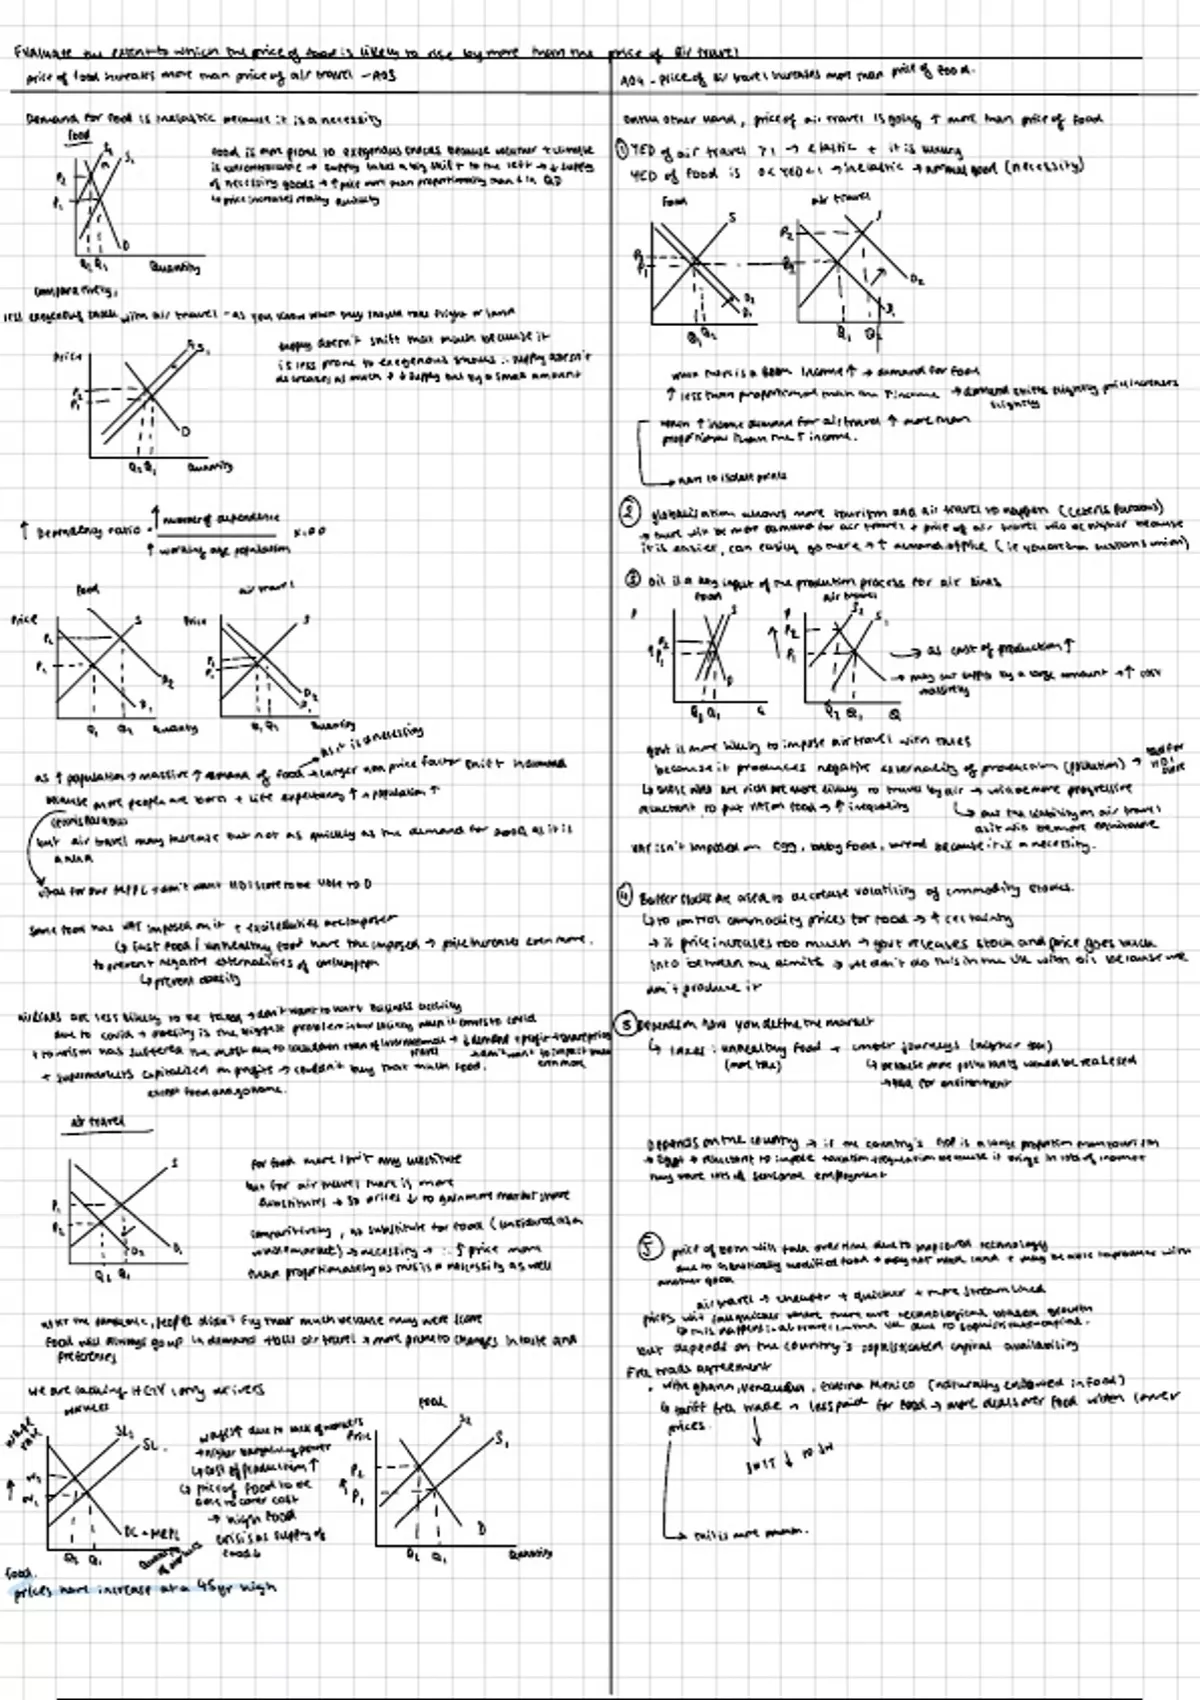 Evaluate the extent to which the price of food is likely to rise by more than the price of air travel
price of food increases more than price of air travel - AO3
Demand for food is inelastic because it is a necessity
food
food is more prone to exogenous shocks because weather + climate
is uncontrollable → supply takes a big shift to the left → ↓ supply
of necessity goods → ↑ price more than proportionally than ↓ in QD
↳ price increases really quickly
P2
P1
S1
D
Q2 Q1
Quantity
comparatively,
less exogenous shock with air travel - as you know when they should take flight or land
Price
supply doesn't shift that much because it
is less prone to exogenous shocks ∴ supply doesn't
decrease as much → ↓ supply but by a small amount
S1
D
Q2 Q1
Quantity
↑ Dependency ratio = ↑ number of dependence
x 100
↑ working age population
food
air travel
Price
P2
P1
S
D2
D1
Q1 Q2
Quantity
Price
S
D2
D1
Q1 Q2
Quantity
as it is a necessity
as ↑ population → massive ↑ demand of food → larger non price factor shift in demand
because more people are born + life expectancy ↑ → population ↑
(ceteris paribus)
but air travel may increase but not as quickly as the demand for food as it is
a want
some food has VAT imposed on it + excise duties are imposed
↳ fast food / unhealthy food have tax imposed → price increases even more.
to prevent negative externalities of consumption
↳ prevent obesity
airlines are less likely to be taxed → don't want to hurt business activity
due to covid → obesity is the biggest problem when it comes to covid
+ tourism has suffered the most due to lockdown
+ supermarkets capitalised on profits → couldn't buy that much food.
except food and go home.
air travel
P1
P2
S
D2
D1
Q2 Q1
for food there isn't any substitute
but for air travel there is more
substitutes → so prices ↓ to gain more market share
comparitively, no substitute for food (considered as a
whole market) → necessity → ∴ ↑ price more
than proportionately as this is a necessity as well
after the pandemic, people didn't fly that much because they were scared
food will always go up in demand + air travel → more prone to changes in taste and
preferences
we are lacking HGV lorry drivers
wage
rate
W2
W1
SL2
SL1
DL = MRPL
Q2 Q1
Quantity of workers
wages ↑ due to lack of workers
→ higher bargaining power
↳ cost of production ↑
↳ price of food to be
due to cover cost
→ high food
crisis as supply of
food ↓
food
Price
P2
P1
S2
S1
D
Q2 Q1
Quantity
food
prices have increase at a 45 yr high
AO4 - price of air travel increases more than price of food.
on the other hand, price of air travel is going ↑ more than price of food
① YED of air travel >1 → elastic + it is luxury
YED of food is 0<YED<1 → inelastic → normal good (necessity)
food
air travel
S
P2
P1
D2
D1
Q1 Q2
P2
P1
S
D2
D1
Q1 Q2
when there is a boom income ↑ → demand for food
↑ less than proportional than the ↑ income → demand shifts slightly price increases
slightly
when ↑ income demand for air travel ↑ more than
proportional than the ↑ income.
↳ hard to isolate
② globalisation allows more tourism and air travel to happen (ceteris paribus)
→ there will be more demand for air travel + price of air travel will be higher because
it is easier, can easily go there → ↑ demand of price (if you are in a customs union)
③ oil is a key input of the production process for air lines
food
air travel
P
P2
P1
S
D
Q2 Q1
Q
P
P2
P1
S2
S1
Q2 Q1
Q
→ as cost of production ↑
→ may cut supply by a large amount → ↑ cost
massively
govt is more likely to impose air travel with taxes
because it produces negative externality of production (pollution)
↳ those who are rich are more likely to travel by air → will be more progressive
reluctant to put VAT on food → ↑ inequality
VAT isn't imposed on egg, baby food, bread because it is a necessity.
④ Buffer stocks are used to decrease volatility of commodity stocks.
↳ to control commodity prices for food → ↑ certainty
→ if price increases too much → govt releases stock and price goes back
into between the limits → we don't do this in the UK with oil because we
don't produce it
⑤ Depends on how you define the market
↳ taxes: unhealthy food + longer journeys (higher tax)
(more tax)
↳ because more pollutants would be released
→ bad for environment
Depends on the country → if the country's GDP is a large proportion from tourism
→ Egypt → reluctant to impose taxation + regulation because it brings in lots of income
may have lots of seasonal employment
⑤ price of both will fall over time due to improved technology
due to genetically modified food → may not need land +
another good
air travel → cheaper + quicker + more streamlined
prices will fall quicker where there are technological based growth
but depends on the country's sophisticated capital availability
Free trade agreement
• with ghana, Venezuela, Mexico (naturally endowed in food)
↳ tariff free trade → less paid for food → more deals over food with lower
prices.